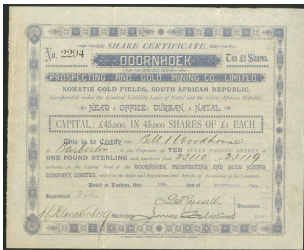 SHARE CERTIFICATE.
No. 2294 Ten £1 Shares.
DOORNHOEK
PROSPECTING AND GOLD MINING CO., LIMITED.
KOMATIE GOLD FIELDS, SOUTH AFRICAN REPUBLIC.
Incorporated under the Limited Liability Laws of Natal and the South African Republic.
HEAD OFFICE: DURBAN, NATAL.
CAPITAL: £45,000, IN 45,000 SHARES OF £1 EACH.
This is to Certify that Woodhouse
Barberton is the Proprietor of TEN FULLY PAID UP SHARES of
ONE POUND STERLING each numbered from 23110 to 23119
inclusive, in the Capital Stock of the DOORNHOEK PROSPECTING AND GOLD MINING
COMPANY, LIMITED, subject to the Rules and Regulations and Articles of Association of the Company.
Dated at Durban, this day of
Secretary